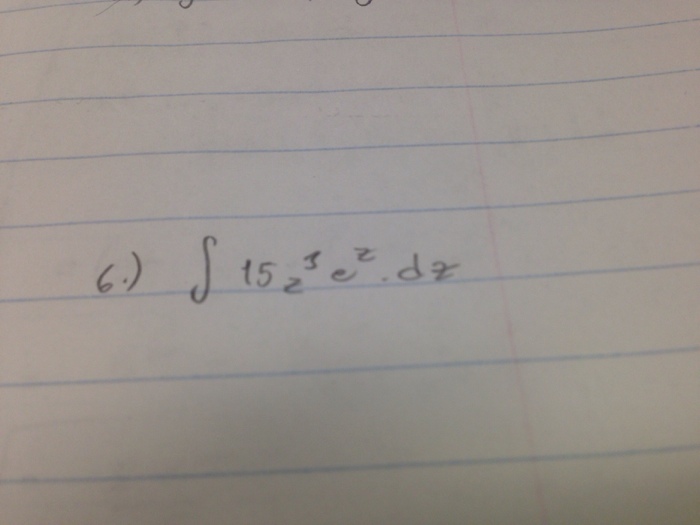 6.) ∫ 15 z³ e^z . dz